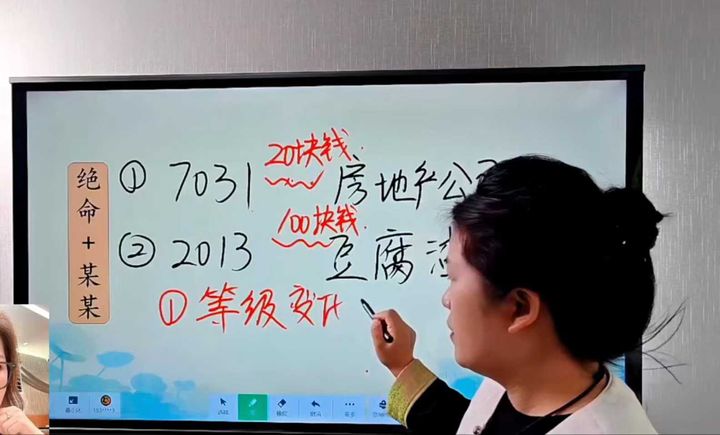 绝命+某某
20块钱
① 7031 房地产公
100块钱
② 2013 豆腐渣
① 等级变